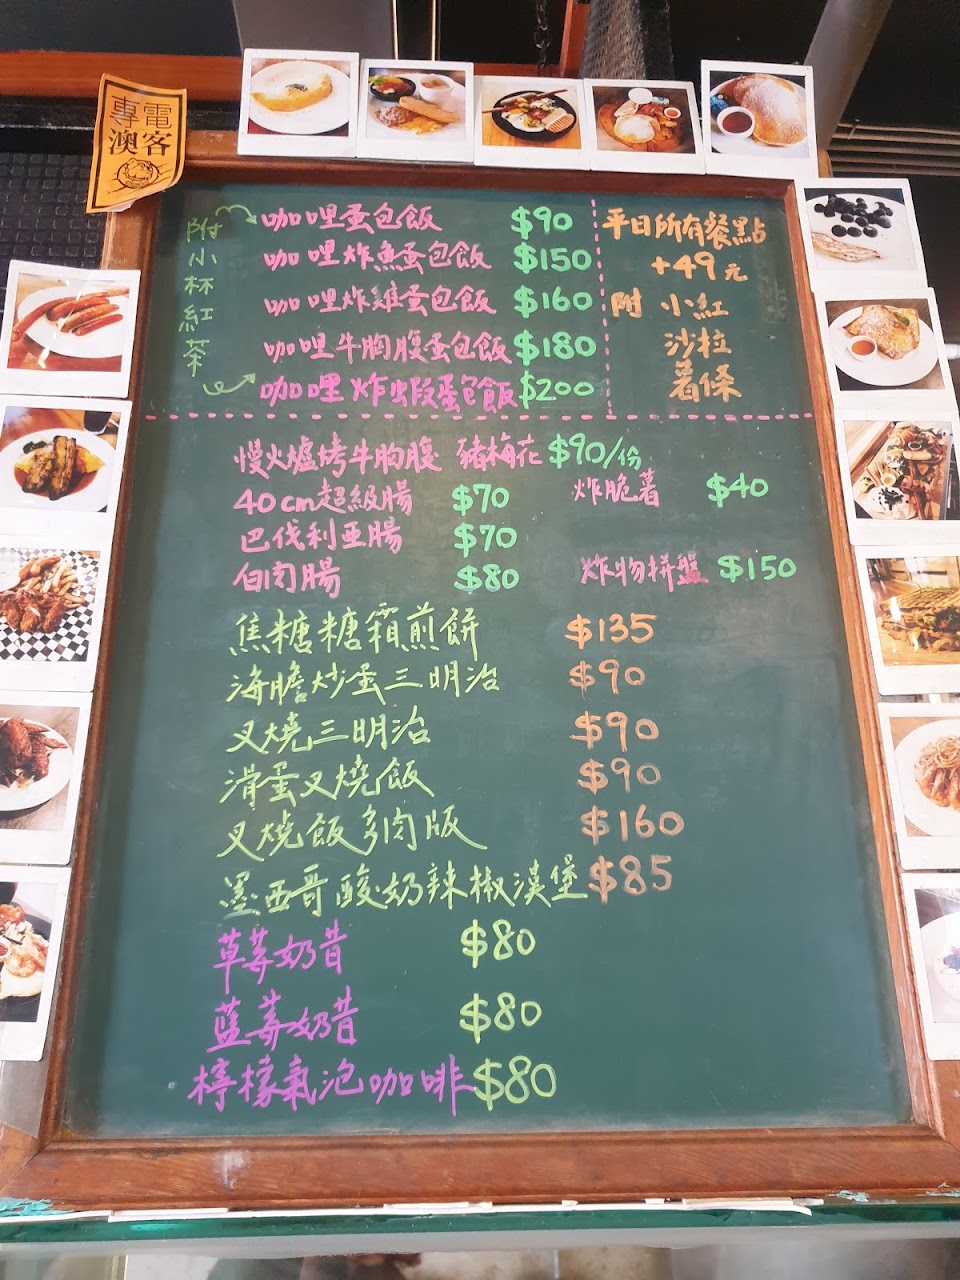 專電
澳客
附小杯紅茶
咖哩蛋包飯 $90
咖哩炸魚蛋包飯 $150
咖哩炸雞蛋包飯 $160
咖哩牛胸腹蛋包飯 $180
咖哩炸蝦蛋包飯 $200
平日所有餐點
+49元
附 小紅
沙拉
薯條
慢火爐烤牛胸腹 豬梅花 $90/份
40cm超級腸 $70 炸脆薯 $40
巴伐利亞腸 $70
白肉腸 $80 炸物拼盤 $150
焦糖糖霜煎餅 $135
海膽炒蛋三明治 $90
叉燒三明治 $90
滑蛋叉燒飯 $90
叉燒飯多肉版 $160
墨西哥酸奶辣椒漢堡 $85
草莓奶昔 $80
藍莓奶昔 $80
檸檬氣泡咖啡 $80